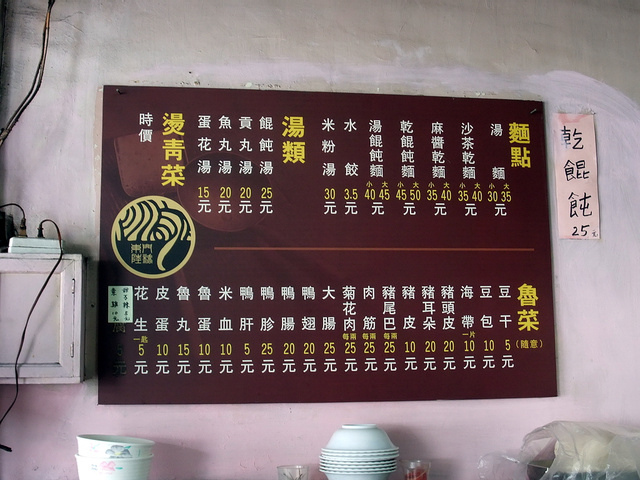 麵點
湯麵 小30 大35元
沙茶乾麵 小35 大40元
麻醬乾麵 小35 大40元
乾餛飩麵 小45 大50元
湯餛飩麵 小40 大45元
水餃 3.5元
米粉湯 30元
湯類
餛飩湯 25元
貢丸湯 20元
魚丸湯 20元
蛋花湯 15元
燙青菜
時價
魯菜(隨意)
豆干 5元
豆包 10元
海帶 一片10元
豬頭皮 20元
豬耳朵 20元
豬皮 10元
豬尾巴 每兩25元
肉筋 每兩25元
菊花肉 每兩25元
大腸 25元
鴨翅 20元
鴨腸 20元
鴨胗 25元
鴨肝 5元
米血 10元
魯蛋 10元
魯丸 15元
皮蛋 10元
花生 一匙5元
乾餛飩 25元